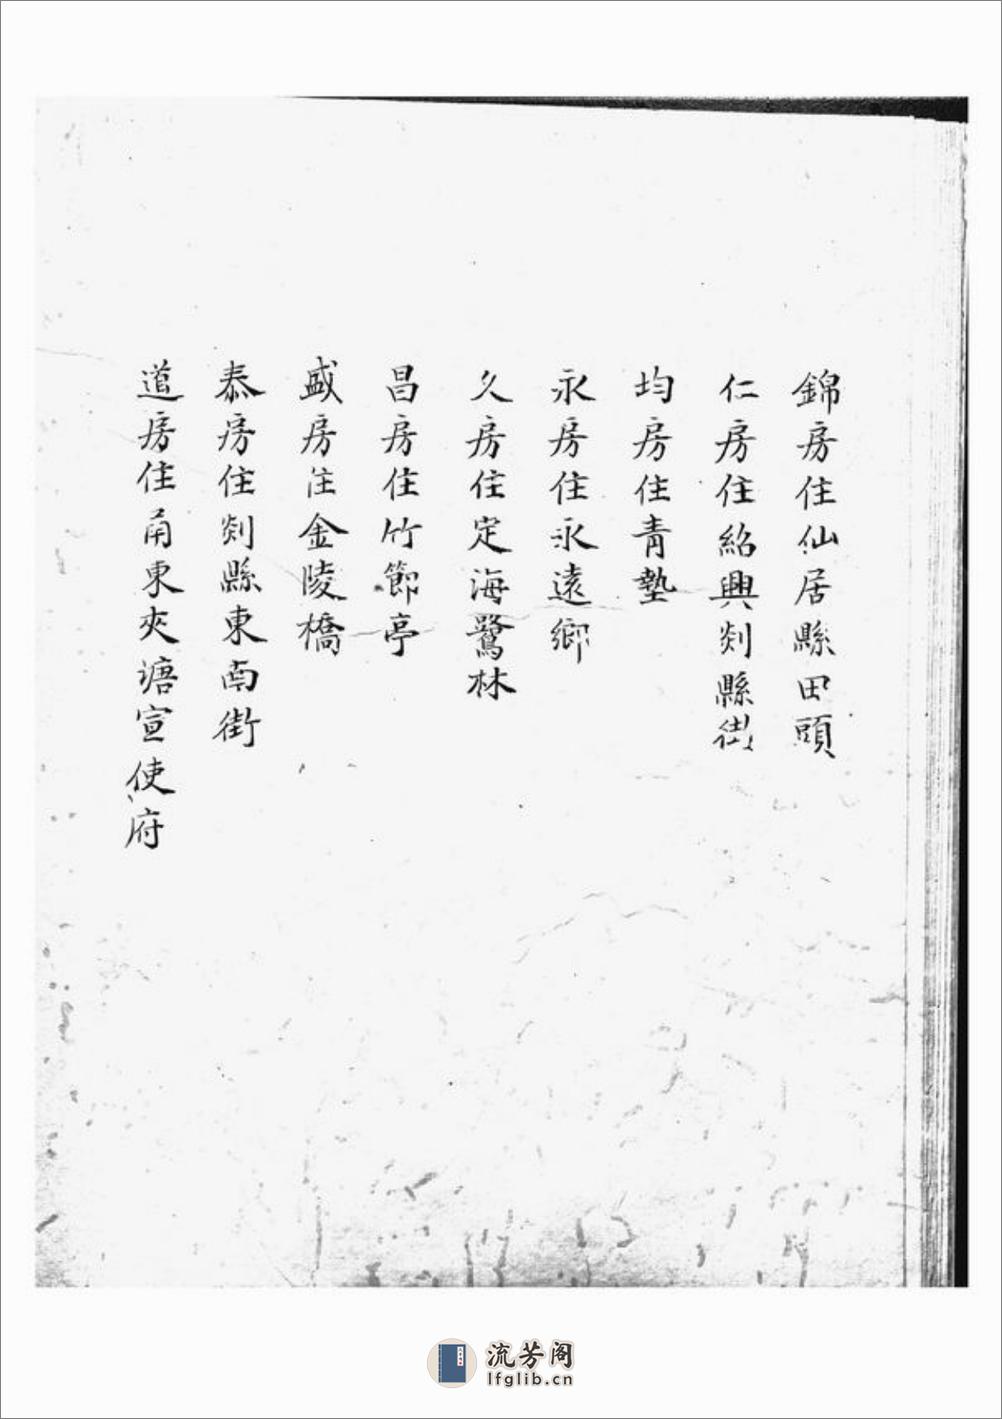 錦房住仙居縣田頭
仁房住紹興剡縣街
均房住青墊
永房住永遠鄉
久房住定海鷺林
昌房住竹節亭
盛房住金陵橋
泰房住剡縣東南街
道房住甬東夾塘宣使府
流芳阁
lfglib.cn